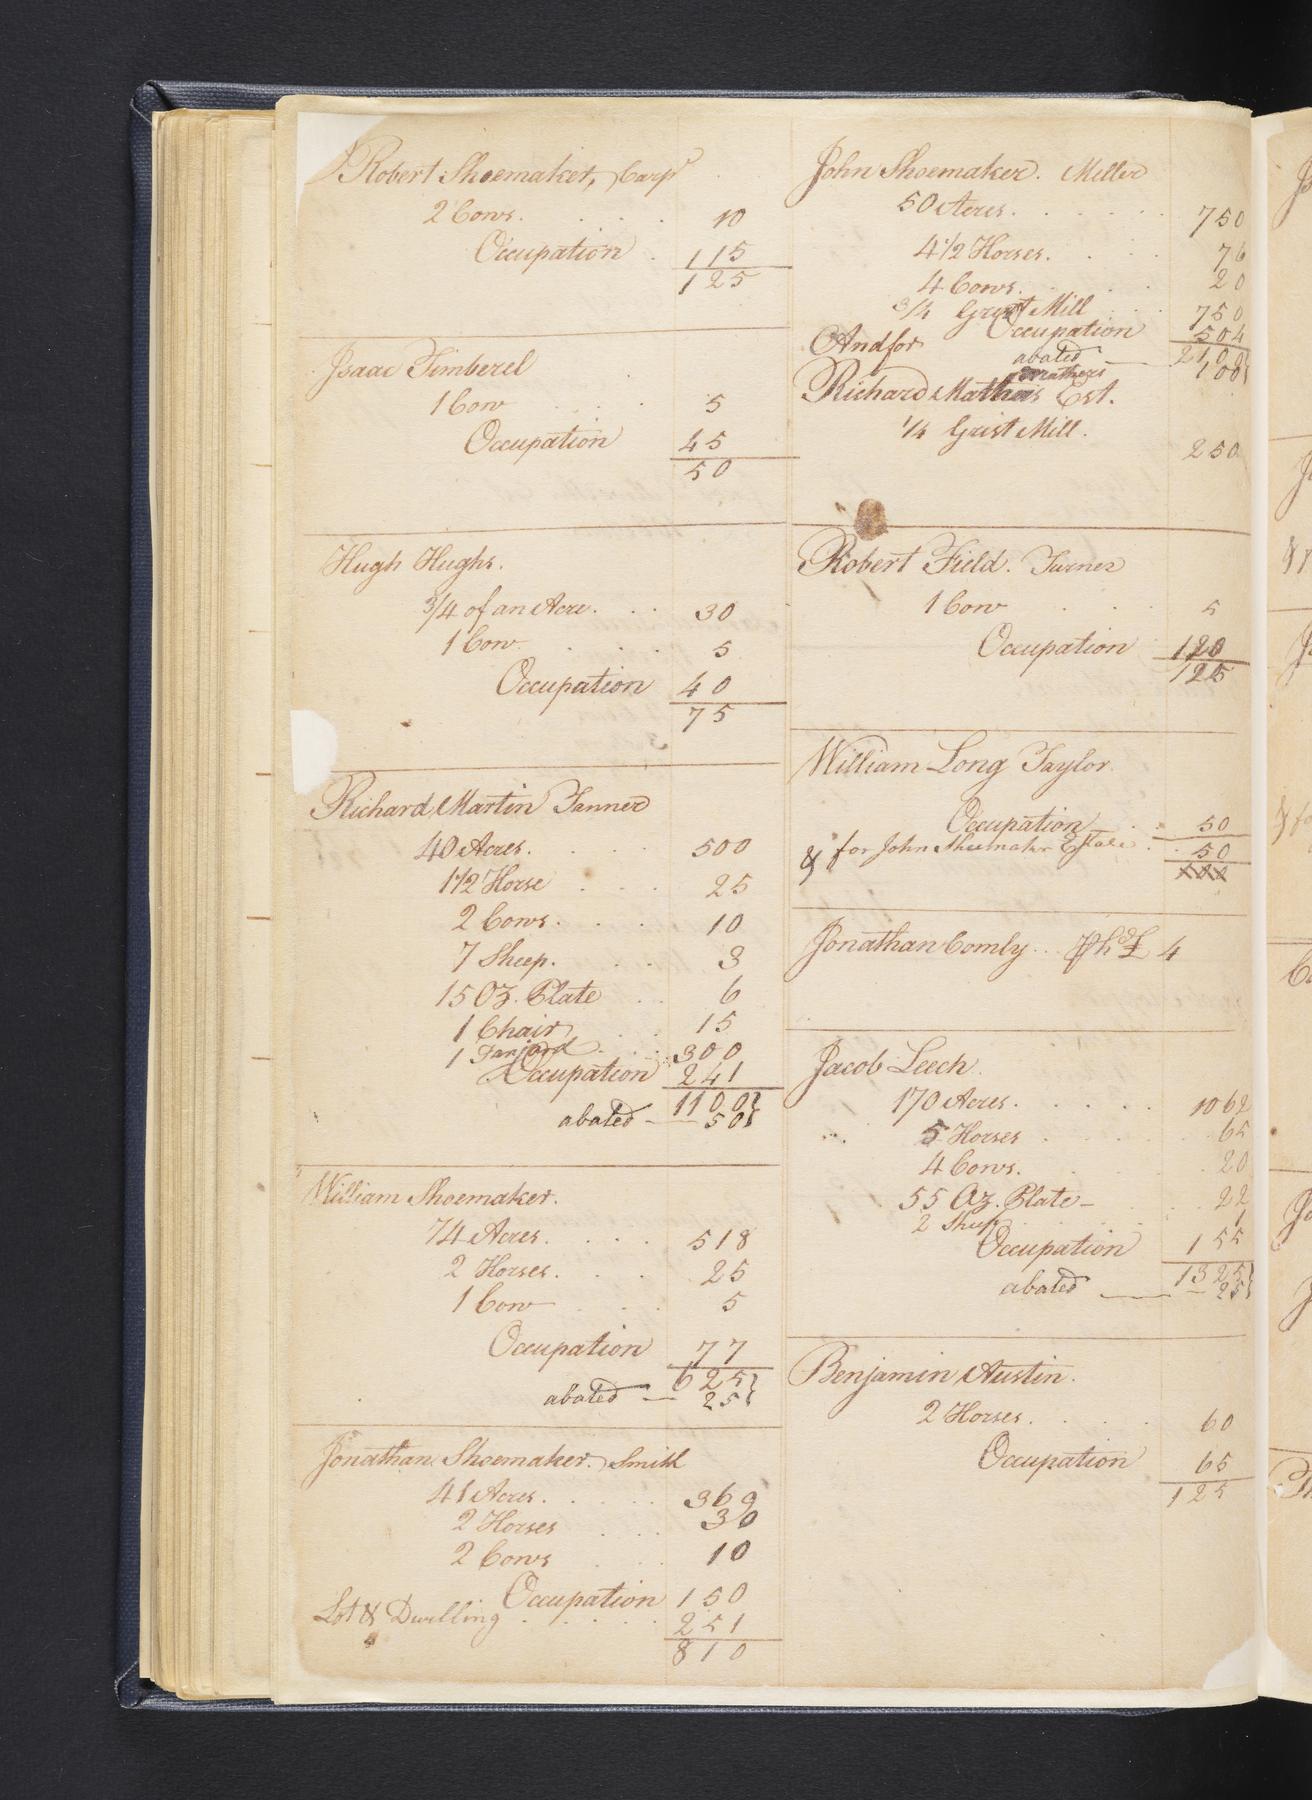 Robert Shoemaker, Carpr
2 Cows. 10
Occupation 115
125
Isaac Timberel
1 Cow 5
Occupation 45
50
Hugh Hughs.
3/4 of an Acre. 30
1 Cow 5
Occupation 40
75
Richard Martin Tanner
40 Acres. 500
1 1/2 Horse 25
2 Cows. 10
7 Sheep. 3
15 Oz. Plate 6
1 Chair 15
1 Tanjard 300
Occupation 241
1100
abated 50
William Shoemaker.
74 Acres. 518
2 Horses. 25
1 Cow 5
Occupation 77
625
abated 25
Jonathan Shoemaker. Smith
41 Acres. 369
2 Horses 30
2 Cows 10
Occupation 150
Lot & Dwelling 251
810
John Shoemaker. Miller
50 Acres. 750
4 1/2 Horses. 76
4 Cows. 20
3/4 Grist Mill 750
Occupation 504
2100
And for abated 100
Mathers
Richard Mathers Est.
1/4 Grist Mill. 250
Robert Field. Turner
1 Cow 5
Occupation 120
125
William Long Taylor.
Occupation 50
& for John Shoemaker Estate 50
100
Jonathan Comly ... 4
Jacob Leech.
170 Acres. 1062
5 Horses 65
4 Cows. 20
55 Oz. Plate 22
2 Sheep 1
Occupation 155
1325
abated 25
Benjamin Austin.
2 Horses. 60
Occupation 65
125